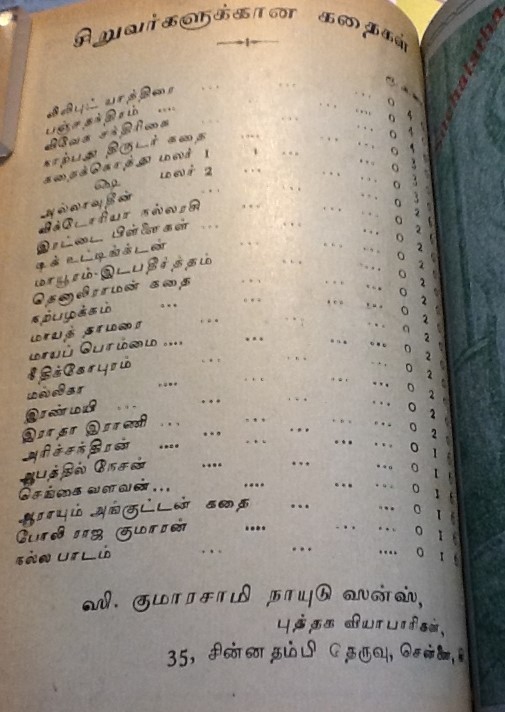 சிறுவர்களுக்கான கதைகள்
லிலிபுட் யாத்திரை ... ... ... 0 4
பஞ்சதந்திரம் .... ... ... 0 4
விவேக சந்திரிகை ... ... 0 4
நாற்பது திருடர் கதை ... ... 0 3
கதைக்கொத்து மலர் 1 ... ... 0 3
௸ மலர் 2 ... ... 0 3
அல்லாவுதீன் ... ... ... 0 3
விக்டோரியா நல்லரசி ... ... 0 2
இரட்டை பிள்ளைகள் ... ... ... 0 2
டிக் உட்டிங்க்டன் ... ... 0 2
மாயூரம்-இடபதீர்த்தம் ... ... 0 2
தெனாலிராமன் கதை ... ... 0 2
கற்பழக்கம் ... ... ... 0 2
மாயத் தாமரை ... ... ... 0 2
மாயப் பொம்மை .... ... ... 0 2
நீதிக்கோபுரம் ... ... ... 0 2
மல்லிகா .... ... ... 0 2
இரண்மயி ... ... ... 0 2
இராதா இராணி ... ... ... 0 2
அரிச்சந்திரன் .... ... ... 0 1 6
ஆபத்தில் நேசன் .... ... ... 0 1 6
செங்கை வளவன் ... .... ... ... 0 1 6
ஆராயும் அங்குட்டன் கதை ... ... 0 1 6
போலி ராஜ குமாரன் .... ... ... 0 1 6
நல்ல பாடம் ... ... .... 0 1 6
ஸி. குமாரசாமி நாயுடு ஸன்ஸ்,
புத்தக வியாபாரிகள்,
35, சின்ன தம்பி தெருவு, சென்னை,